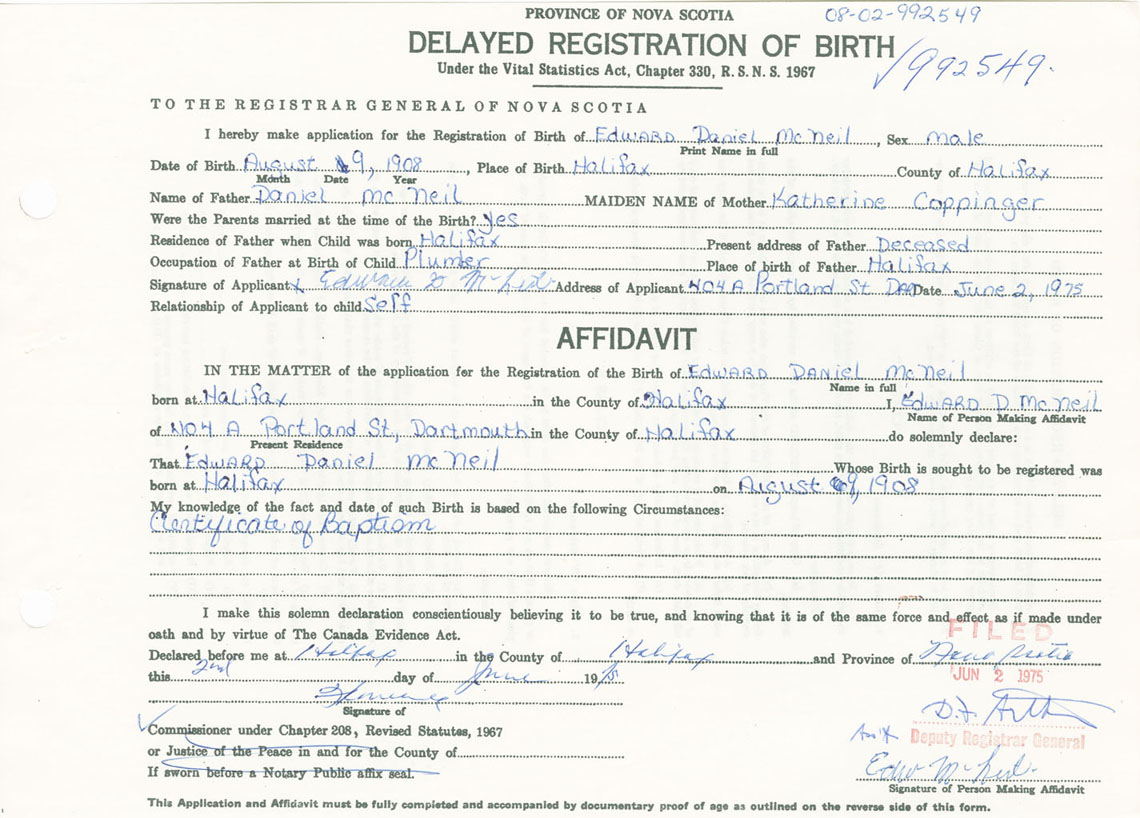 PROVINCE OF NOVA SCOTIA 08-02-992549
DELAYED REGISTRATION OF BIRTH
Under the Vital Statistics Act, Chapter 330, R.S.N.S. 1967 √992549.
TO THE REGISTRAR GENERAL OF NOVA SCOTIA
I hereby make application for the Registration of Birth of EDWARD Daniel McNeil, Sex male
Print Name in full
Date of Birth August 9, 1908, Place of Birth Halifax County of Halifax
Month Date Year
Name of Father Daniel McNeil MAIDEN NAME of Mother Katherine Coppinger
Were the Parents married at the time of the Birth? Yes
Residence of Father when Child was born Halifax Present address of Father Deceased
Occupation of Father at Birth of Child Plumber Place of birth of Father Halifax
Signature of Applicant x Edward D McNeil Address of Applicant NO4A Portland St Dar Date June 2, 1975
Relationship of Applicant to child Self
AFFIDAVIT
IN THE MATTER of the application for the Registration of the Birth of EDWARD DANIEL McNeil
Name in full
born at Halifax in the County of Halifax I, EDWARD D McNeil
Name of Person Making Affidavit
of NO4 A Portland St, Dartmouth in the County of Halifax do solemnly declare:
Present Residence
That EDWARD Daniel McNeil Whose Birth is sought to be registered was
born at Halifax on August 9, 1908
My knowledge of the fact and date of such Birth is based on the following Circumstances:
Certificate of Baptism
I make this solemn declaration conscientiously believing it to be true, and knowing that it is of the same force and effect as if made under
oath and by virtue of The Canada Evidence Act.
FILED
Declared before me at Halifax in the County of Halifax and Province of Nova Scotia
this 2nd day of June 1975
JUN 2 1975
Signature of
Commissioner under Chapter 208, Revised Statutes, 1967
Deputy Registrar General
or Justice of the Peace in and for the County of
If sworn before a Notary Public affix seal.
Edw McNeil
Signature of Person Making Affidavit
This Application and Affidavit must be fully completed and accompanied by documentary proof of age as outlined on the reverse side of this form.